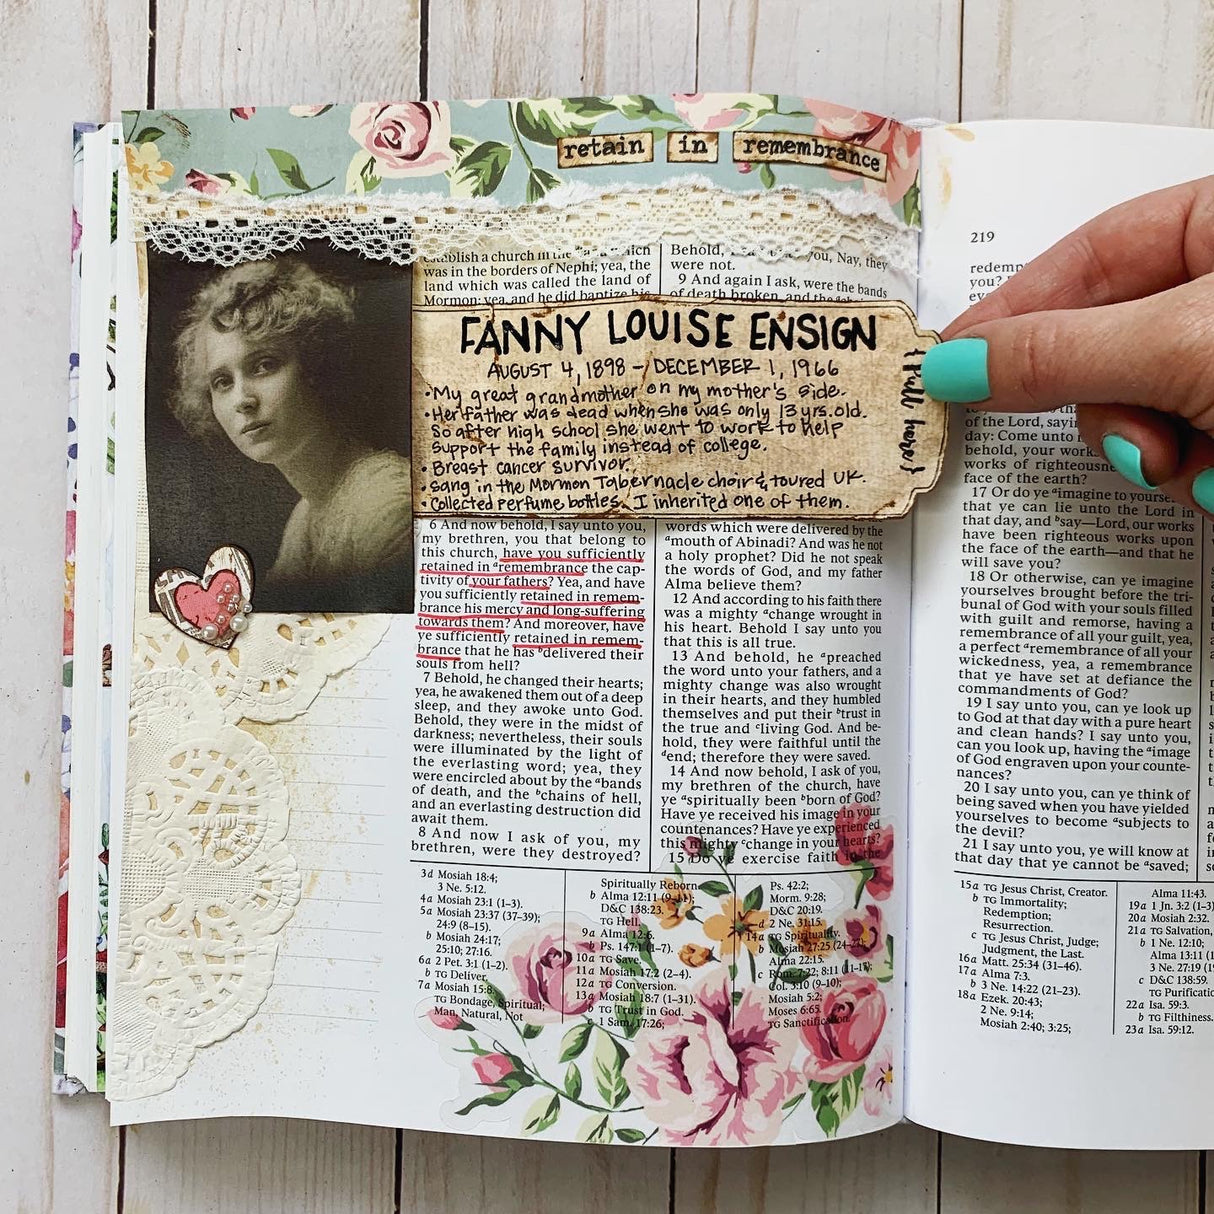 retain in remembrance
establish a church in the which
was in the borders of Nephi; yea, the
land which was called the land of
Mormon; yea, and he did baptize his
Behold, you, Nay, they
were not.
9 And again I ask, were the bands
of death broken, and the
FANNY LOUISE ENSIGN
AUGUST 4, 1898 - DECEMBER 1, 1966
•My great grandmother on my mother's side.
•Her father was dead when she was only 13 yrs. old.
So after high school she went to work to help
support the family instead of college.
•Breast cancer survivor.
•Sang in the Mormon Tabernacle choir & toured UK.
•Collected perfume bottles. I inherited one of them.
{Pull here}
6 And now behold, I say unto you,
my brethren, you that belong to
this church, have you sufficiently
retained in ᵃremembrance the cap-
tivity of your fathers? Yea, and have
you sufficiently retained in remem-
brance his mercy and long-suffering
towards them? And moreover, have
ye sufficiently retained in remem-
brance that he has ᵇdelivered their
souls from hell?
7 Behold, he changed their hearts;
yea, he awakened them out of a deep
sleep, and they awoke unto God.
Behold, they were in the midst of
darkness; nevertheless, their souls
were illuminated by the light of
the everlasting word; yea, they
were encircled about by the ᵃbands
of death, and the ᵇchains of hell,
and an everlasting destruction did
await them.
8 And now I ask of you, my
brethren, were they destroyed?
words which were delivered by the
ᵃmouth of Abinadi? And was he not
a holy prophet? Did he not speak
the words of God, and my father
Alma believe them?
12 And according to his faith there
was a mighty ᵃchange wrought in
his heart. Behold I say unto you
that this is all true.
13 And behold, he ᵃpreached
the word unto your fathers, and a
mighty change was also wrought
in their hearts, and they humbled
themselves and put their ᵇtrust in
the true and ᶜliving God. And be-
hold, they were faithful until the
ᵈend; therefore they were saved.
14 And now behold, I ask of you,
my brethren of the church, have
ye ᵃspiritually been ᵇborn of God?
Have ye received his image in your
countenances? Have ye experienced
this mighty ᶜchange in your hearts?
15 Do ye exercise faith in the
3d Mosiah 18:4;
3 Ne. 5:12.
4a Mosiah 23:1 (1–3).
5a Mosiah 23:37 (37–39);
24:9 (8–15).
b Mosiah 24:17;
25:10; 27:16.
6a 2 Pet. 3:1 (1–2).
b TG Deliver.
7a Mosiah 15:8.
TG Bondage, Spiritual;
Man, Natural, Not
Spiritually Reborn.
b Alma 12:11 (9–11);
D&C 138:23.
TG Hell.
9a Alma 12:6.
b Ps. 147:1 (1–7).
10a TG Save.
11a Mosiah 17:2 (2–4).
12a TG Conversion.
13a Mosiah 18:7 (1–31).
b TG Trust in God.
c 1 Sam. 17:26;
Ps. 42:2;
Morm. 9:28;
D&C 20:19.
d 2 Ne. 31:15.
14a TG Spirituality.
b Mosiah 27:25 (24–27);
Alma 22:15.
c Rom. 7:22; 8:11 (11–15);
Col. 3:10 (9–10);
Mosiah 5:2;
Moses 6:65.
TG Sanctification.
219
redemp
you?
of the Lord, sayin
day: Come unto
behold, your work
works of righteousne
face of the earth?
17 Or do ye ᵃimagine to yourse
that ye can lie unto the Lord in
that day, and ᵇsay—Lord, our works
have been righteous works upon
the face of the earth—and that he
will save you?
18 Or otherwise, can ye imagine
yourselves brought before the tri-
bunal of God with your souls filled
with guilt and remorse, having a
remembrance of all your guilt, yea,
a perfect ᵃremembrance of all your
wickedness, yea, a remembrance
that ye have set at defiance the
commandments of God?
19 I say unto you, can ye look up
to God at that day with a pure heart
and clean hands? I say unto you,
can you look up, having the ᵃimage
of God engraven upon your counte-
nances?
20 I say unto you, can ye think of
being saved when you have yielded
yourselves to become ᵃsubjects to
the devil?
21 I say unto you, ye will know at
that day that ye cannot be ᵃsaved;
15a TG Jesus Christ, Creator.
b TG Immortality;
Redemption;
Resurrection.
c TG Jesus Christ, Judge;
Judgment, the Last.
16a Matt. 25:34 (31–46).
17a Alma 7:3.
b 3 Ne. 14:22 (21–23).
18a Ezek. 20:43;
2 Ne. 9:14;
Mosiah 2:40; 3:25;
Alma 11:43.
19a 1 Jn. 3:2 (1–3)
20a Mosiah 2:32.
21a TG Salvation,
b 1 Ne. 12:10;
Alma 13:11 (1
3 Ne. 27:19 (19
c D&C 138:59.
TG Purificati
22a Isa. 59:3.
b TG Filthiness.
23a Isa. 59:12.